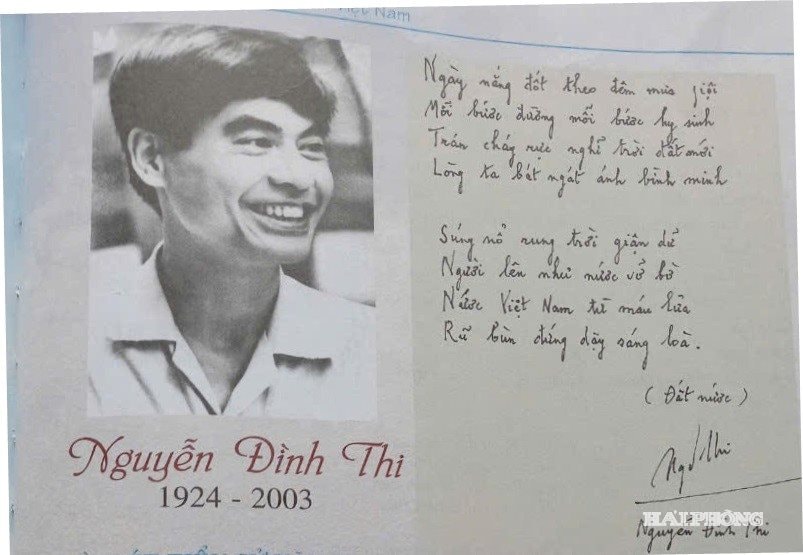 Việt Nam
Nguyễn Đình Thi
1924 - 2003
Ngày nắng đốt theo đêm mưa giội
Mỗi bước đường mỗi bước hy sinh
Trán cháy rực nghĩ trời đất mới
Lòng ta bát ngát ánh bình minh
Súng nổ rung trời giận dữ
Người lên như nước vỡ bờ
Nước Việt Nam từ máu lửa
Rũ bùn đứng dậy sáng loà.
(Đất nước)
Nguyễn Đình Thi
HẢI PHÒNG